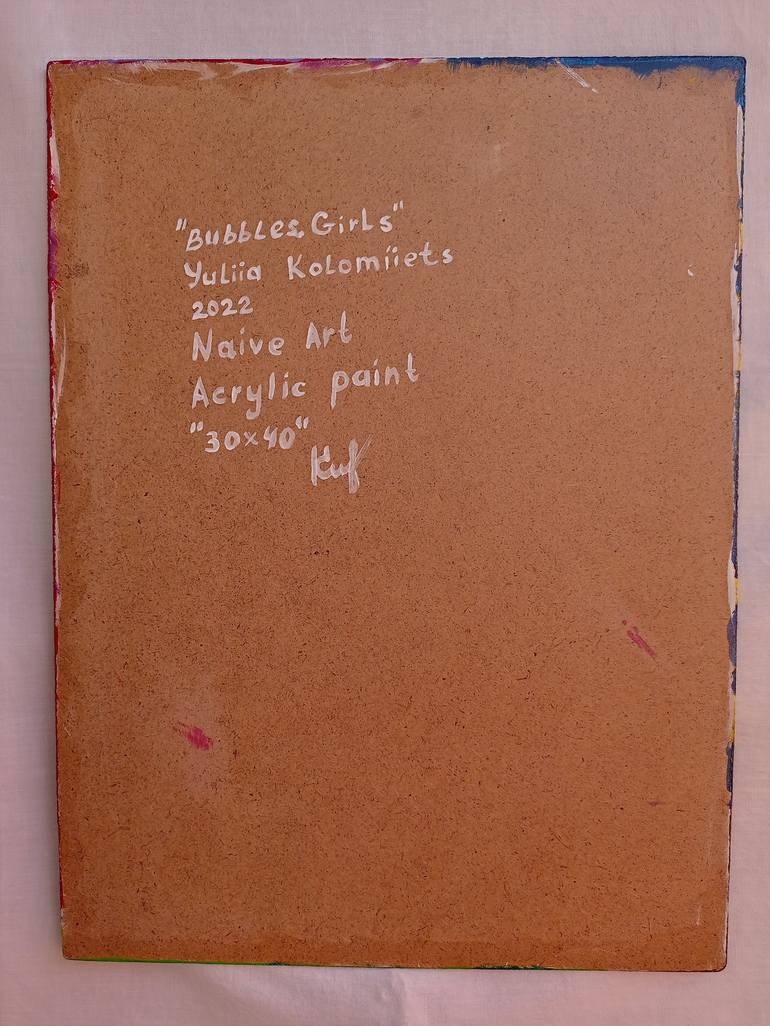 "Bubbles Girls"
Yuliia Kolomiiets
2022
Naive Art
Acrylic paint
"30x40"